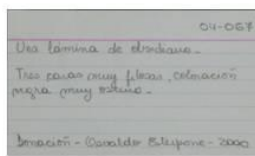 04-067
Una lámina de obsidiana.
Tres caras muy planas, coloración
negra muy
Donación - Osvaldo - 2000